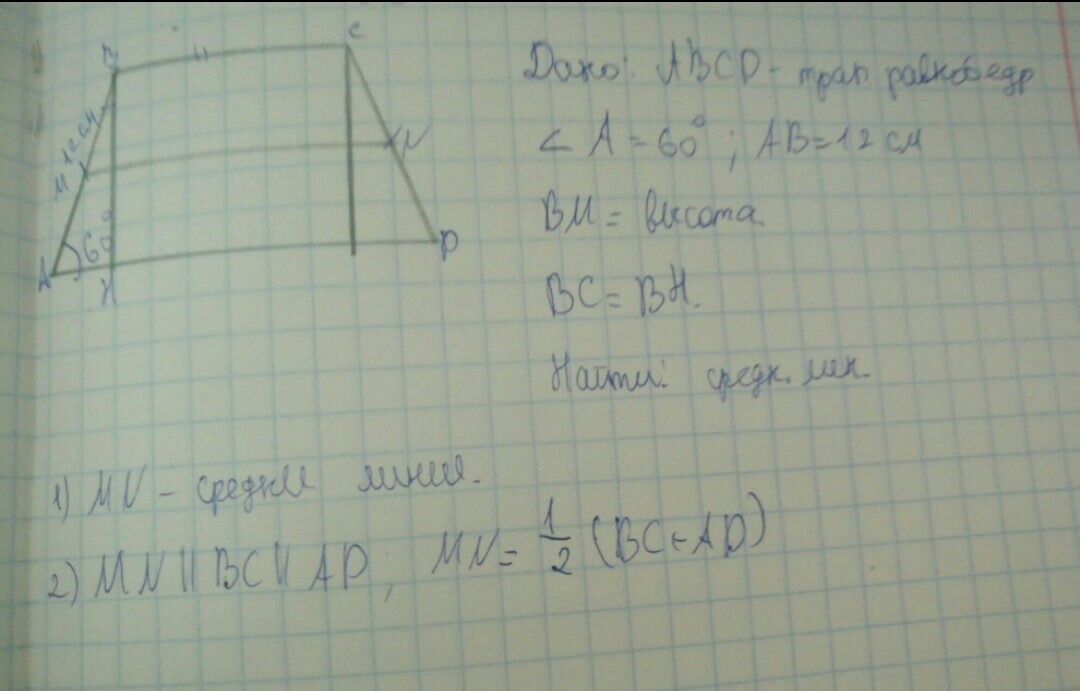 B
C
Дано: ABCD - трап равнобедр
12 см
∠ A = 60° ; AB = 12 см
M
N
BM = высота
60°
A
H
D
BC = BH.
Найти: средн. лин.
1) MN - средняя линия.
2) MN || BC || AD ; MN = 1/2 (BC + AD)